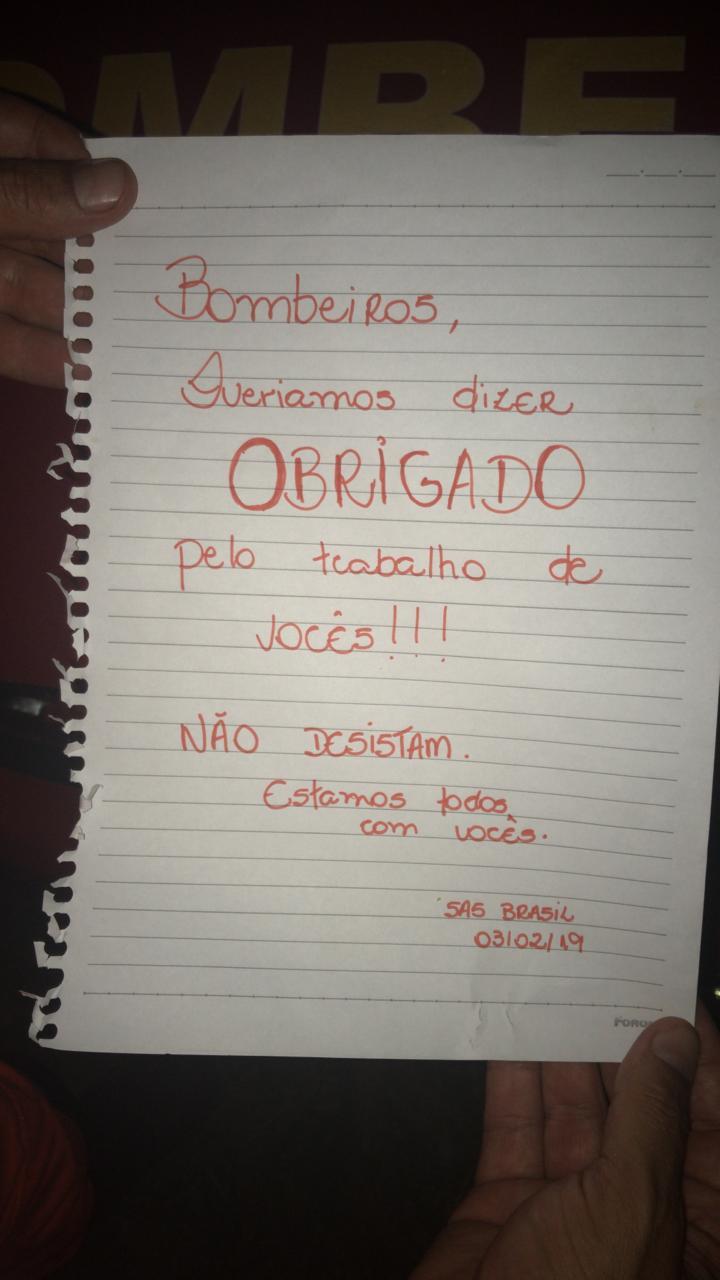 OMBE
Bombeiros,
Queriamos dizer
OBRIGADO
pelo trabalho de
vocês!!!
NÃO DESISTAM.
Estamos todos
com vocês.
SAS BRASIL
03/02/19